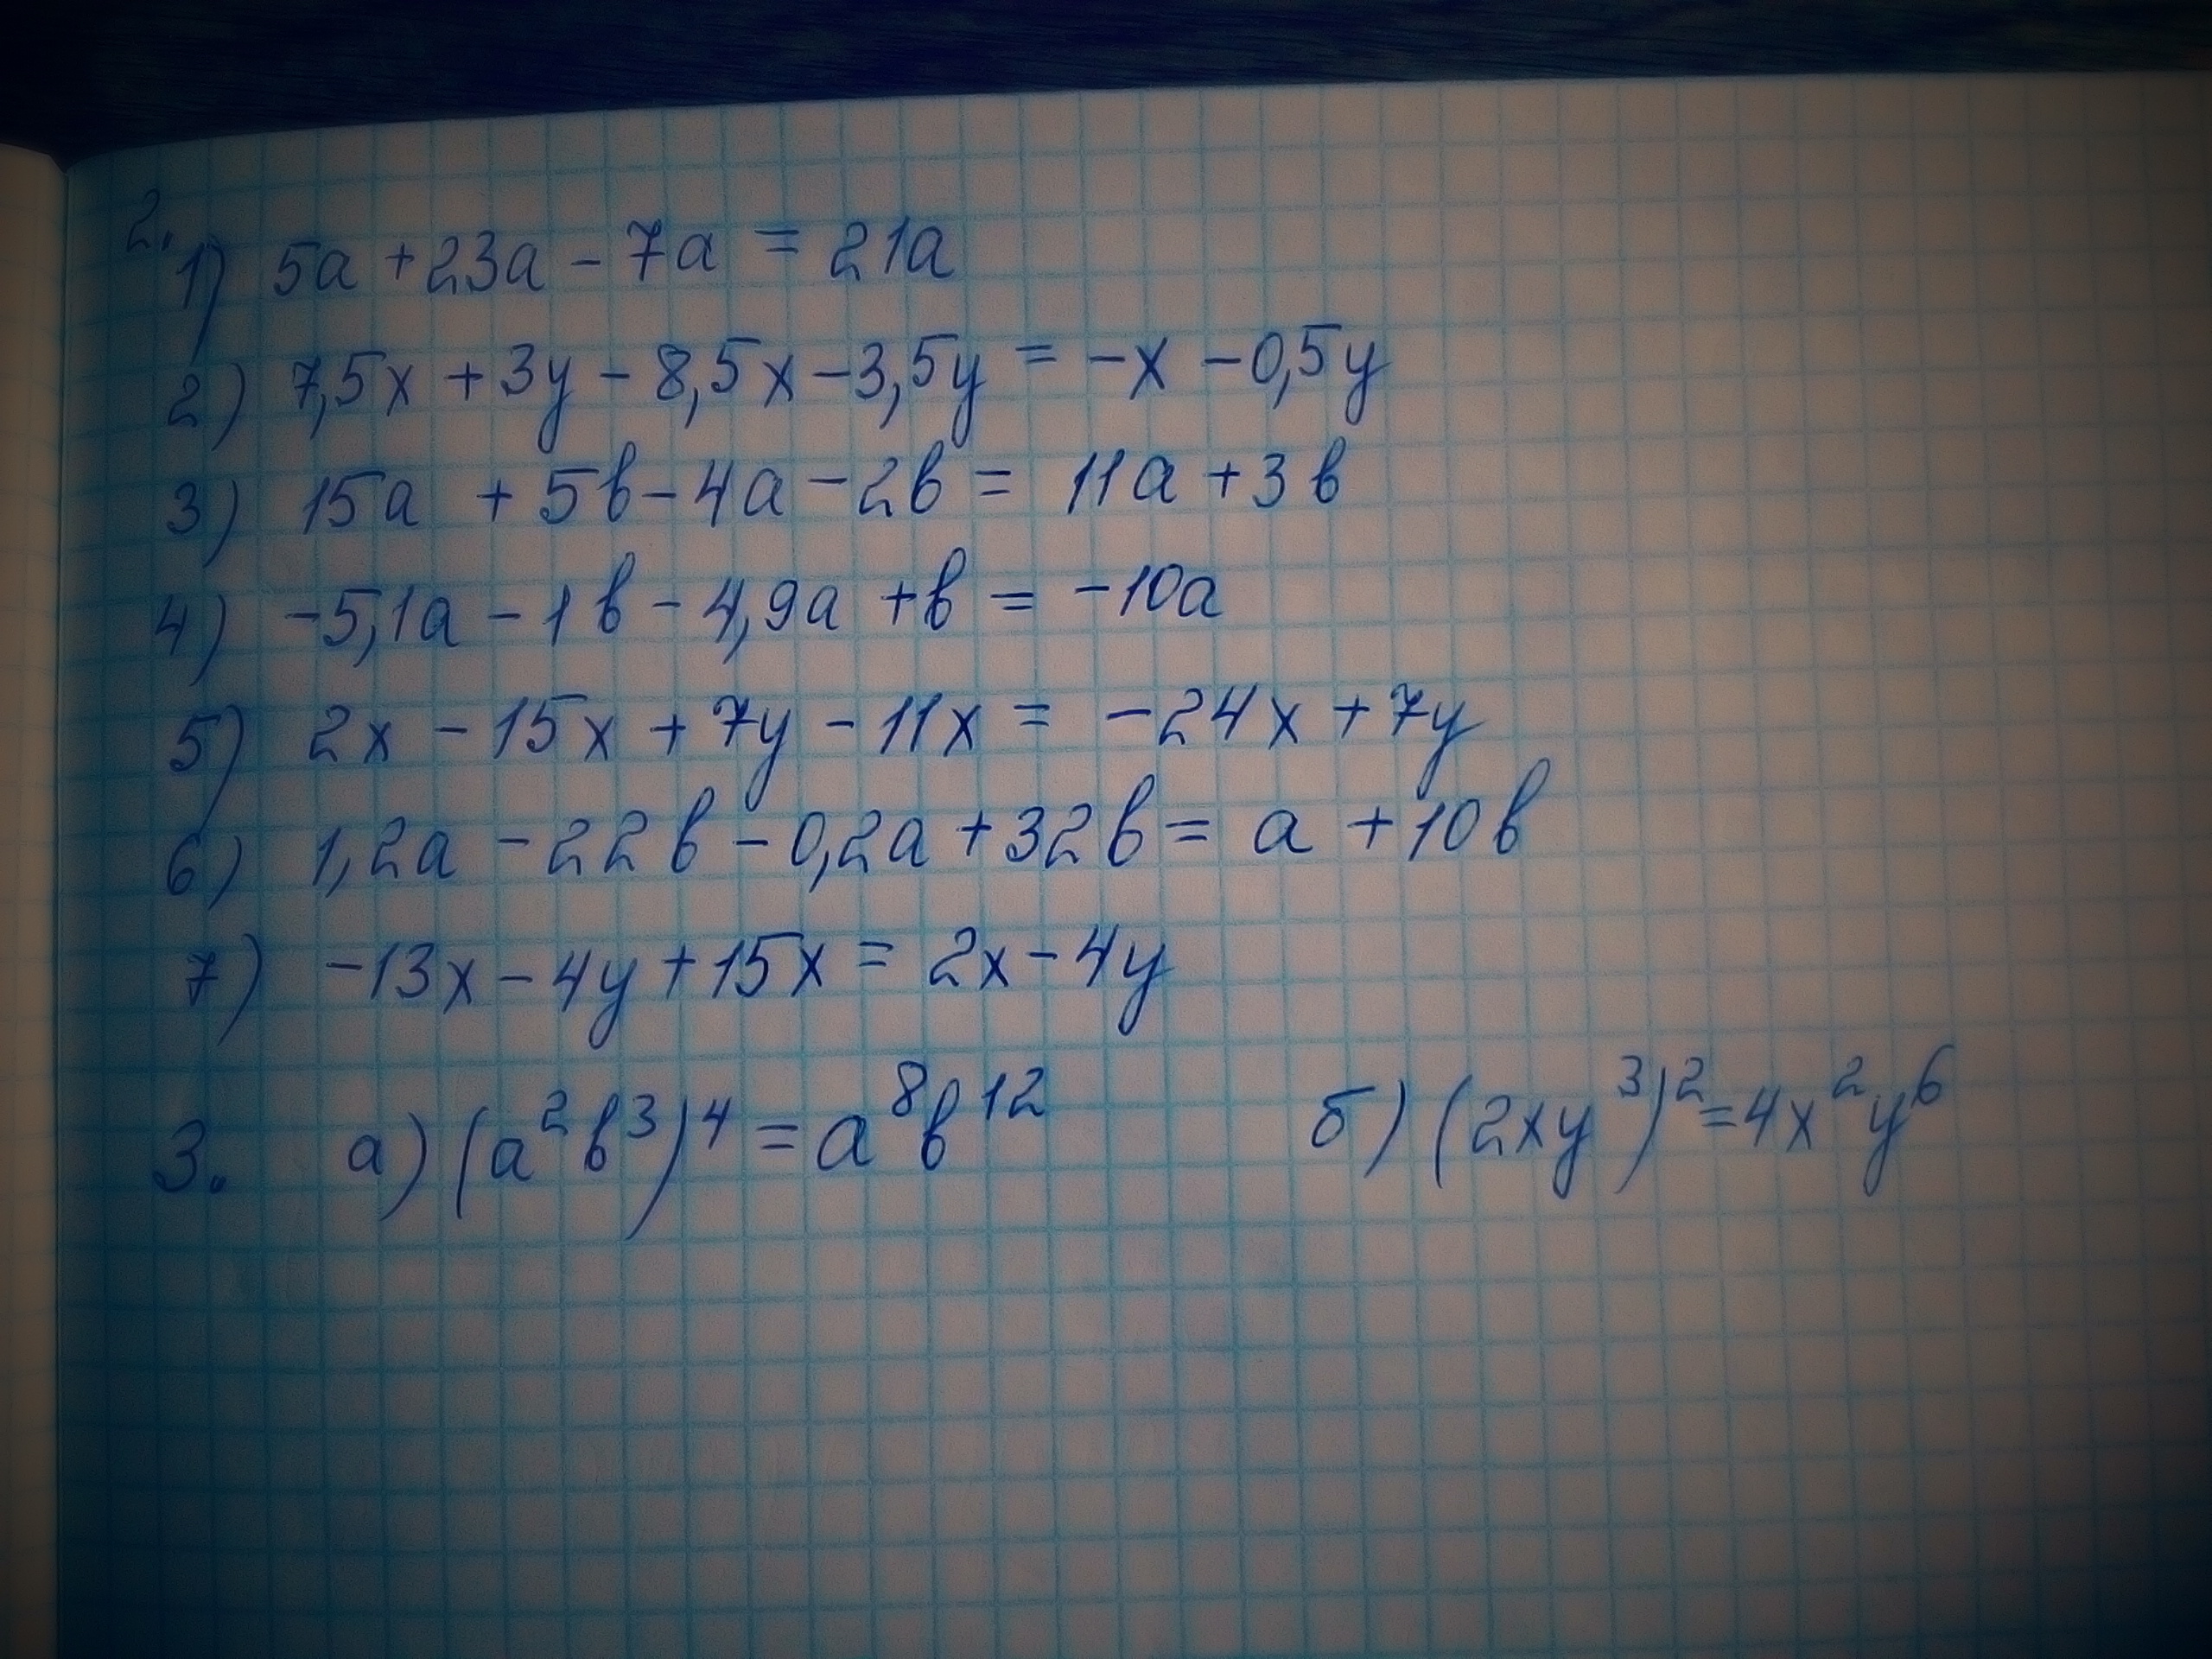 2.
1) 5a + 23a - 7a = 21a
2) 7,5x + 3y - 8,5x - 3,5y = -x - 0,5y
3) 15a + 5b - 4a - 2b = 11a + 3b
4) -5,1a - 1b - 4,9a + b = -10a
5) 2x - 15x + 7y - 11x = -24x + 7y
6) 1,2a - 22b - 0,2a + 32b = a + 10b
7) -13x - 4y + 15x = 2x - 4y
3. а) (a²b³)⁴ = a⁸b¹² б) (2xy³)² = 4x²y⁶